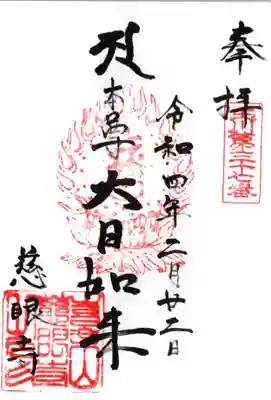 奉拝
令和四年二月廿二日
本尊大日如来
慈眼寺